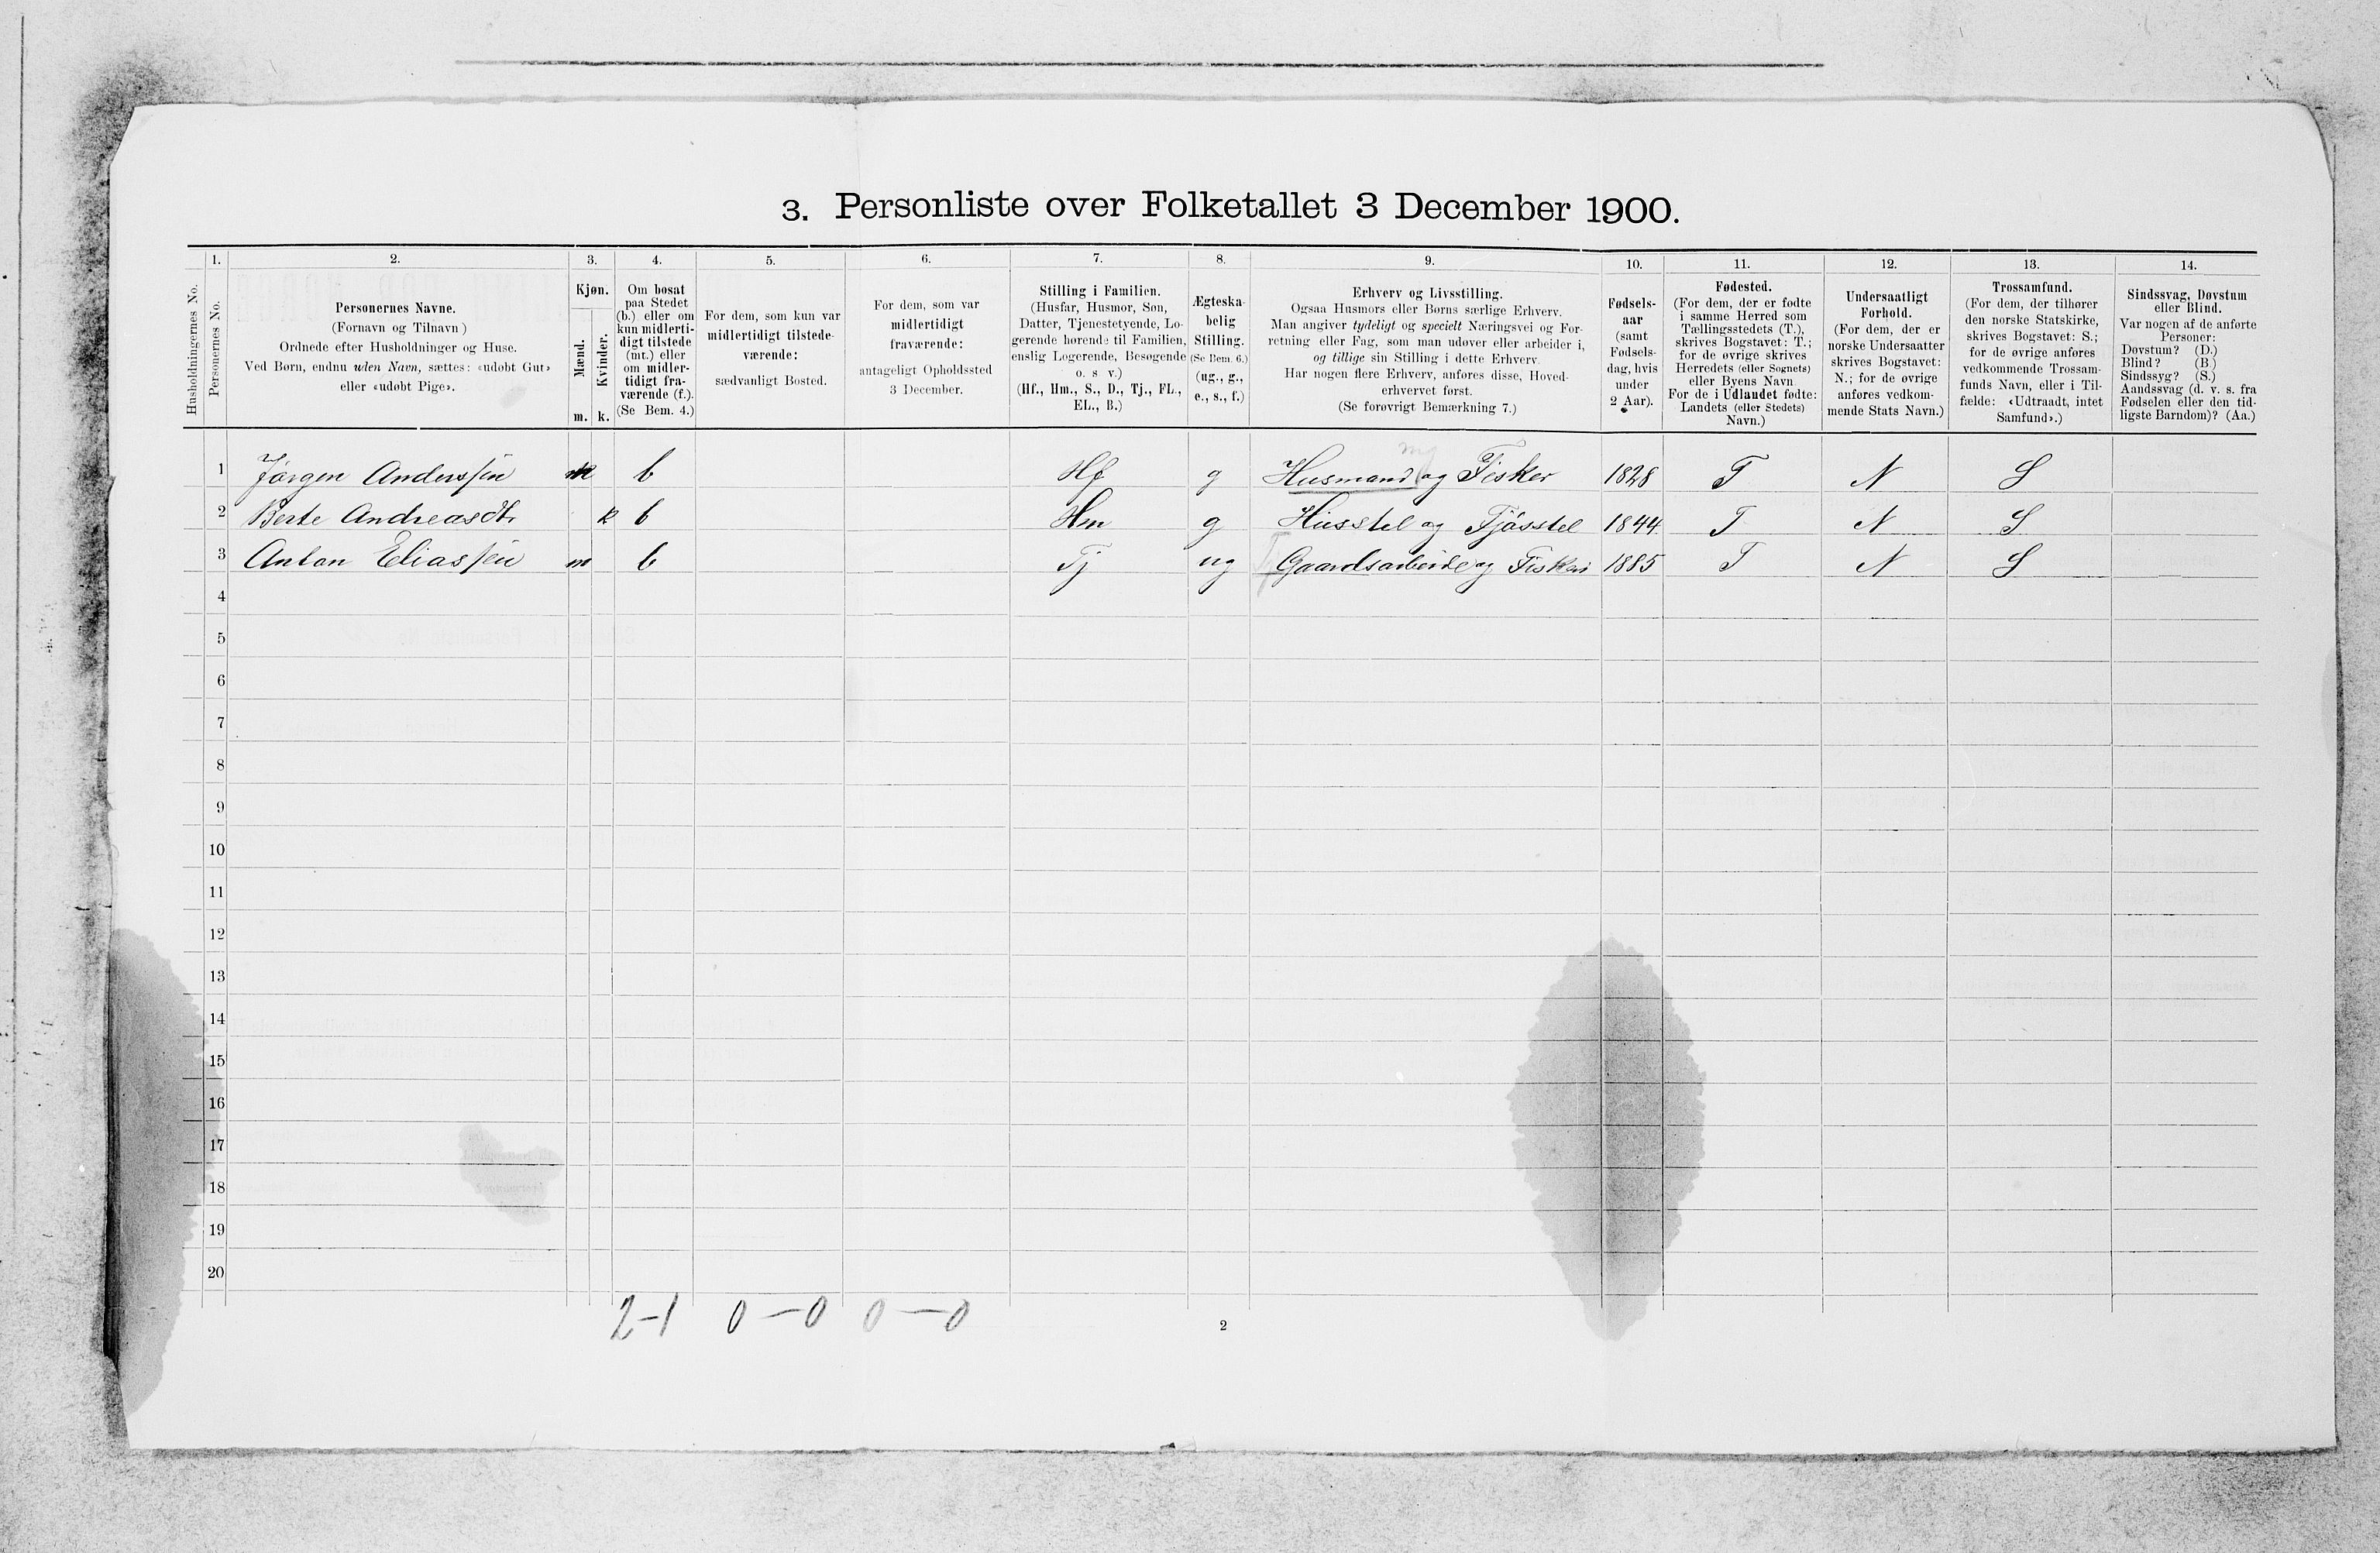 3. Personliste over Folketallet 3 December 1900.
Husholdningernes No.
1.
Personernes No.
2.
Personernes Navne.
(Fornavn og Tilnavn)
Ordnede efter Husholdninger og Huse.
Ved Børn, endnu uden Navn, sættes: «udøbt Gut»
eller «udøbt Pige».
3.
Kjøn.
Mænd.
m.
Kvinder.
k.
4.
Om bosat
paa Stedet
(b.) eller om
kun midlerti-
digt tilstede
(mt.) eller
om midler-
tidigt fra-
værende (f.).
(Se Bem. 4.)
5.
For dem, som kun var
midlertidigt tilstede-
værende:
sædvanligt Bosted.
6.
For dem, som var
midlertidigt
fraværende:
antageligt Opholdssted
3 December.
7.
Stilling i Familien.
(Husfar, Husmor, Søn,
Datter, Tjenestetyende, Lo-
gerende hørende til Familien,
enslig Logerende, Besøgende
o. s. v.)
(Hf., Hm., S., D., Tj., FL.,
EL., B.)
8.
Ægteska-
belig
Stilling.
(Se Bem. 6.)
(ug., g.,
e., s., f.)
9.
Erhverv og Livsstilling.
Ogsaa Husmors eller Børns særlige Erhverv.
Man angiver tydeligt og specielt Næringsvei og For-
retning eller Fag, som man udøver eller arbeider i,
og tillige sin Stilling i dette Erhverv.
Har nogen flere Erhverv, anføres disse, Hoved-
erhvervet først.
(Se forøvrigt Bemærkning 7.)
10.
Fødsels-
aar
(samt
Fødsels-
dag, hvis
under
2 Aar).
11.
Fødested.
(For dem, der er fødte
i samme Herred som
Tællingsstedets (T.),
skrives Bogstavet: T.;
for de øvrige skrives
Herredets (eller Sognets)
eller Byens Navn.
For de i Udlandet fødte:
Landets (eller Stedets)
Navn.)
12.
Undersaatligt
Forhold.
(For dem, der er
norske Undersaatter
skrives Bogstavet:
N.; for de øvrige
anføres vedkom-
mende Stats Navn.)
13.
Trossamfund.
(For dem, der tilhører
den norske Statskirke,
skrives Bogstavet: S.;
for de øvrige anføres
vedkommende Trossam-
funds Navn, eller i Til-
fælde: «Udtraadt, intet
Samfund».)
14.
Sindssvag, Døvstum
eller Blind.
Var nogen af de anførte
Personer:
Døvstum? (D.)
Blind? (B.)
Sindssyg? (S.)
Aandssvag (d. v. s. fra
Fødselen eller den tid-
ligste Barndom)? (Aa.)
1 Jørgen Anderssen m b Hf g Husmand og Fisker 1828 T N S
2 Berte Andreasdt. k b Hm g Husstel og Fjøsstel 1844 T N S
3 Anton Eliassen m b Tj ug Gaardsarbeide og Fiskeri 1885 T N S
4
5
6
7
8
9
10
11
12
13
14
15
16
17
18
19
20
2-1 0-0 0-0
2